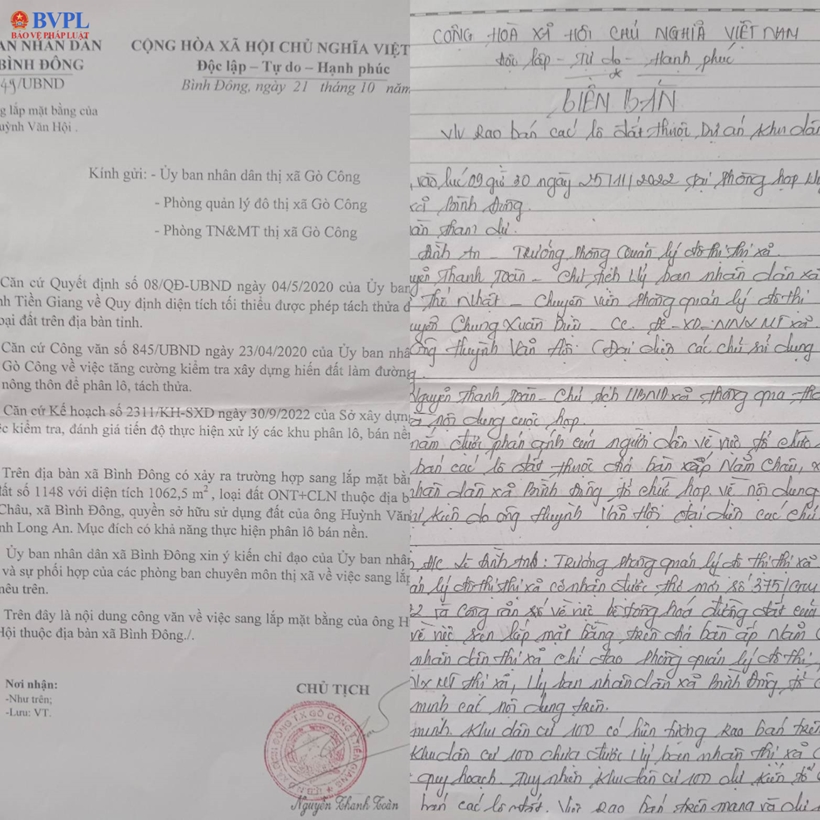 BVPL
BẢO VỆ PHÁP LUẬT
AN NHÂN DÂN
BÌNH ĐÔNG
/UBND
g lắp mặt bằng của
uỳnh Văn Hội .
CỘNG HÒA XÃ HỘI CHỦ NGHĨA VIỆT
Độc lập – Tự do – Hạnh phúc
Bình Đông, ngày 21 tháng 10 năm
Kính gửi: - Ủy ban nhân dân thị xã Gò Công
- Phòng quản lý đô thị xã Gò Công
- Phòng TN&MT thị xã Gò Công
Căn cứ Quyết định số 08/QĐ-UBND ngày 04/5/2020 của Ủy ban
nh Tiền Giang về Quy định diện tích tối thiểu được phép tách thửa đ
oại đất trên địa bàn tỉnh.
Căn cứ Công văn số 845/UBND ngày 23/04/2020 của Ủy ban nhâ
Gò Công về việc tăng cường kiểm tra xây dựng hiến đất làm đường
nông thôn để phân lô, tách thửa.
Căn cứ Kế hoạch số 2311/KH-SXD ngày 30/9/2022 của Sở xây dựng
c kiểm tra, đánh giá tiến độ thực hiện xử lý các khu phân lô, bán nền
Trên địa bàn xã Bình Đông có xảy ra trường hợp sang lắp mặt bằ
ất số 1148 với diện tích 1062,5 m², loại đất ONT+CLN thuộc địa b
Châu, xã Bình Đông, quyền sở hữu sử dụng đất của ông Huỳnh Văn
nh Long An. Mục đích có khả năng thực hiện phân lô bán nền.
Ủy ban nhân dân xã Bình Đông xin ý kiến chỉ đạo của Ủy ban nhân
và sự phối hợp của các phòng ban chuyên môn thị xã về việc sang lấp
nêu trên.
Trên đây là nội dung công văn về việc sang lắp mặt bằng của ông H
Hội thuộc địa bàn xã Bình Đông./.
Nơi nhận:
-Như trên;
-Lưu: VT.
CHỦ TỊCH
Nguyễn Thanh Toàn
CỘNG HOÀ XÃ HỘI CHỦ NGHĨA VIỆT NAM
Độc lập - Tự do - Hạnh phúc
BIÊN BẢN
V/v Rao bán các lô đất thuộc Dự án khu dân
vào lúc 09 giờ 30 ngày 25/11/2022 tại phòng họp
xã Bình Đông.
ần tham dự
Đình An - Trưởng phòng Quản lý đô thị thị xã
uyễn Thanh Toàn - Chủ tịch Ủy ban nhân dân xã
Thế Nhật - Chuyên viên phòng quản lý đô thị
uyễn Chung Xuân - CC ĐC-XD-NN MT xã
Ông Huỳnh Văn Hội (Đại diện các chủ sử dụng
Nguyễn Thanh Toàn - Chủ tịch UBND xã thông qua
nội dung cuộc họp.
nắm được phản ánh của người dân về việc tổ chức
bán các lô đất thuộc địa bàn xã ấp Năm Châu, x
nhân dân xã Bình Đông tổ chức họp về nội dung
sự kiện do ông Huỳnh Văn Hội đại diện các chủ
Đ/c Lê Đình Anh: Trưởng phòng quản lý đô thị thị xã
ản lý đô thị thị xã có nhận được thư mời số 375/
và công văn số về việc bê tông hoá đường đất của
về việc san lấp mặt bằng trên địa bàn ấp Năm
nhân dân thị xã chỉ đạo phòng quản lý đô thị,
MT thị xã, Ủy ban nhân dân xã Bình Đông tổ
minh các nội dung trên.
minh. Khu dân cư 100 có hiện tượng rao bán trên
khu dân cư 100 chưa được Uỷ ban nhân thị xã
quy hoạch. Tuy nhiên khu dân cư 100 dự kiến tổ
bán các lô đất. Việc rao bán trên mạng và